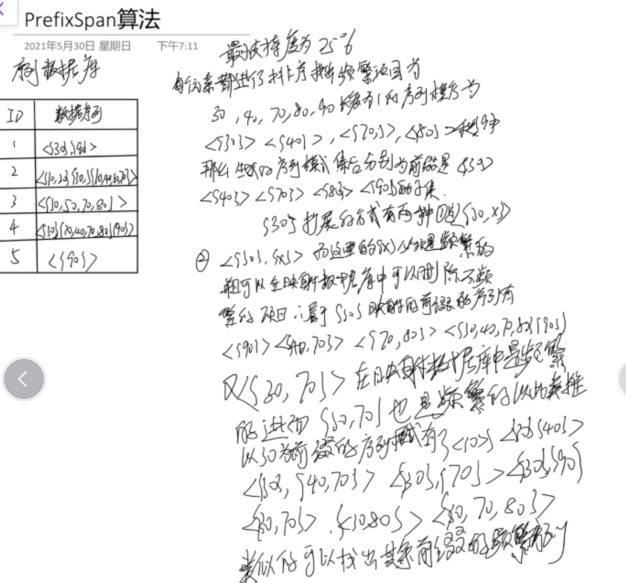 PrefixSpan算法
2021年5月30日 星期日 下午7:11
序列数据库
ID 数据序列
1 <{30}{90}>
2 <{10,20}{30}{10,40,60,70}>
3 <{30,50,70,80}>
4 <{30}{30,40,70,80}{90}>
5 <{90}>
最小支持度为25%
每个元素都进行了排序 频繁项目为
30,40,70,80,90 长度为1的序列模式为
<{30}> <{40}>, <{70}>, <{80}>
那么 序列模式集合分别为前缀是<{30}>
<{40}> <{70}> <{80}> <{90}>的子集.
{30}扩展的方式有两种 ①<{30,x}>
② <{30},{x}> 而这里的{x}必须是频繁的
可以在映射数据库中可以删除不频
繁的项目
<{90}> <{40,70}> <{70,80}> <{30,40,70,80}{90}>
又<{30,70}> 在映射数据库中是频繁
的进而 {30,70}也是频繁的 以此类推
以30为前缀的序列模式有
<{30},{40,70}> <{30},{70}> <{30}{90}>
<{30,70}>. <{30,80}> <{30,70,80}>
类似的可以找出其余前缀的频繁序列